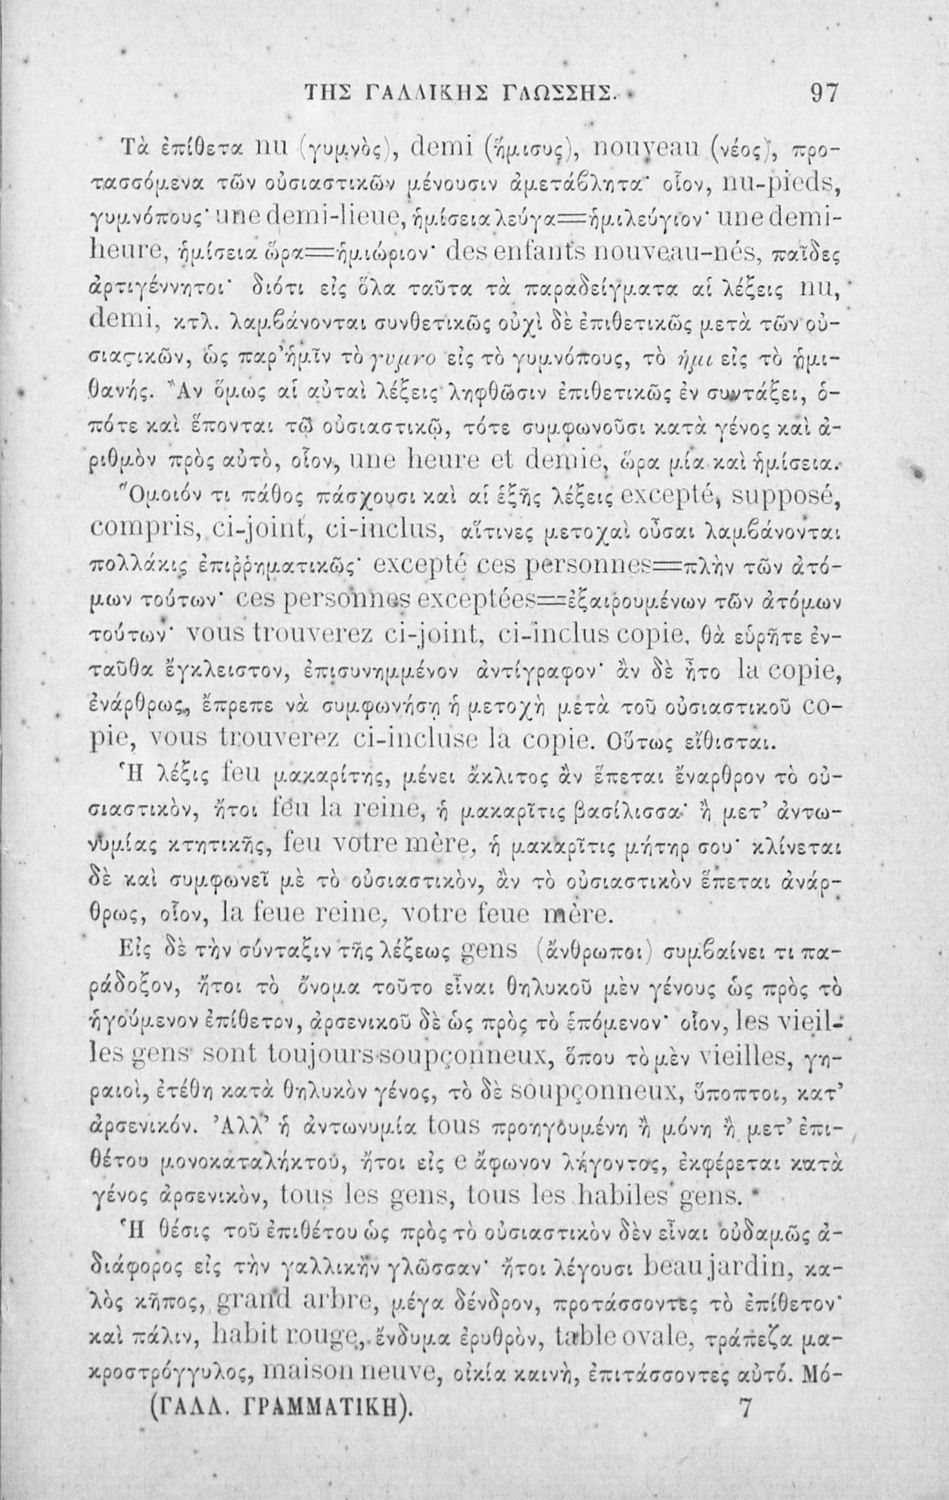 ΤΗΣ ΓΑΛΛΙΚΗΣ ΓΛΩΣΣΗΣ. 97
Τὰ ἐπίθετα nu (γυμνὸς), demi (ἥμισυς), nouveau (νέος), προ-
τασσόμενα τῶν οὐσιαστικῶν μένουσιν ἀμετάβλητα· οἷον, nu-pieds,
γυμνόπους· une demi-lieue, ἡμίσεια λεύγα=ἡμιλεύγιον· une demi-
heure, ἡμίσεια ὥρα=ἡμιώριον· des enfants nouveau-nés, παῖδες
ἀρτιγέννητοι· διότι εἰς ὅλα ταῦτα τὰ παραδείγματα αἱ λέξεις nu,
demi, κτλ. λαμβάνονται συνθετικῶς οὐχὶ δὲ ἐπιθετικῶς μετὰ τῶν οὐ-
σιαςικῶν, ὡς παρ' ἡμῖν τὸ γυμνο εἰς τὸ γυμνόπους, τὸ ἡμι εἰς τὸ ἡμι-
θανής. Ἂν ὅμως αἱ αὐταὶ λέξεις ληφθῶσιν ἐπιθετικῶς ἐν συντάξει, ὁ-
πότε καὶ ἕπονται τῷ οὐσιαστικῷ, τότε συμφωνοῦσι κατὰ γένος καὶ ἀ-
ριθμὸν πρὸς αὐτὸ, οἷον, une heure et demie, ὥρα μία καὶ ἡμίσεια.
Ὅμοιόν τι πάθος πάσχουσι καὶ αἱ ἑξῆς λέξεις excepté, supposé,
compris, ci-joint, ci-inclus, αἵτινες μετοχαὶ οὖσαι λαμβάνονται
πολλάκις ἐπιῤῥηματικῶς· excepté ces personnes=πλὴν τῶν ἀτό-
μων τούτων· ces personnes exceptées=ἐξαιρουμένων τῶν ἀτόμων
τούτων· vous trouverez ci-joint, ci-inclus copie, θὰ εὑρῆτε ἐν-
ταῦθα ἔγκλειστον, ἐπισυνημμένον ἀντίγραφον· ἂν δὲ ἦτο la copie,
ἐνάρθρως, ἔπρεπε νὰ συμφωνήσῃ ἡ μετοχὴ μετὰ τοῦ οὐσιαστικοῦ co-
pie, vous trouverez ci-incluse la copie. Οὕτως εἴθισται.
Ἡ λέξις feu μακαρίτης, μένει ἄκλιτος ἂν ἕπεται ἔναρθρον τὸ οὐ-
σιαστικὸν, ἤτοι feu la reine, ἡ μακαρῖτις βασίλισσα· ἢ μετ' ἀντω-
νυμίας κτητικῆς, feu votre mère, ἡ μακαρῖτις μήτηρ σου· κλίνεται
δὲ καὶ συμφωνεῖ μὲ τὸ οὐσιαστικὸν, ἂν τὸ οὐσιαστικὸν ἕπεται ἀνάρ-
θρως, οἷον, la feue reine, votre feue mère.
Εἰς δὲ τὴν σύνταξιν τῆς λέξεως gens (ἄνθρωποι) συμβαίνει τι πα-
ράδοξον, ἤτοι τὸ ὄνομα τοῦτο εἶναι θηλυκοῦ μὲν γένους ὡς πρὸς τὸ
ἡγούμενον ἐπίθετον, ἀρσενικοῦ δὲ ὡς πρὸς τὸ ἑπόμενον· οἷον, les vieil-
les gens sont toujours soupçonneux, ὅπου τὸ μὲν vieilles, γη-
ραιοὶ, ἐτέθη κατὰ θηλυκὸν γένος, τὸ δὲ soupçonneux, ὕποπτοι, κατ'
ἀρσενικόν. Ἀλλ' ἡ ἀντωνυμία tous προηγουμένη ἢ μόνη ἢ μετ' ἐπι-
θέτου μονοκαταλήκτου, ἤτοι εἰς e ἄφωνον λήγοντος, ἐκφέρεται κατὰ
γένος ἀρσενικὸν, tous les gens, tous les habiles gens.
Ἡ θέσις τοῦ ἐπιθέτου ὡς πρὸς τὸ οὐσιαστικὸν δὲν εἶναι οὐδαμῶς ἀ-
διάφορος εἰς τὴν γαλλικὴν γλῶσσαν· ἤτοι λέγουσι beau jardin, κα-
λὸς κῆπος, grand arbre, μέγα δένδρον, προτάσσοντες τὸ ἐπίθετον·
καὶ πάλιν, habit rouge, ἔνδυμα ἐρυθρὸν, table ovale, τράπεζα μα-
κροστρόγγυλος, maison neuve, οἰκία καινὴ, ἐπιτάσσοντες αὐτό. Μό-
(ΓΑΛΛ. ΓΡΑΜΜΑΤΙΚΗ). 7